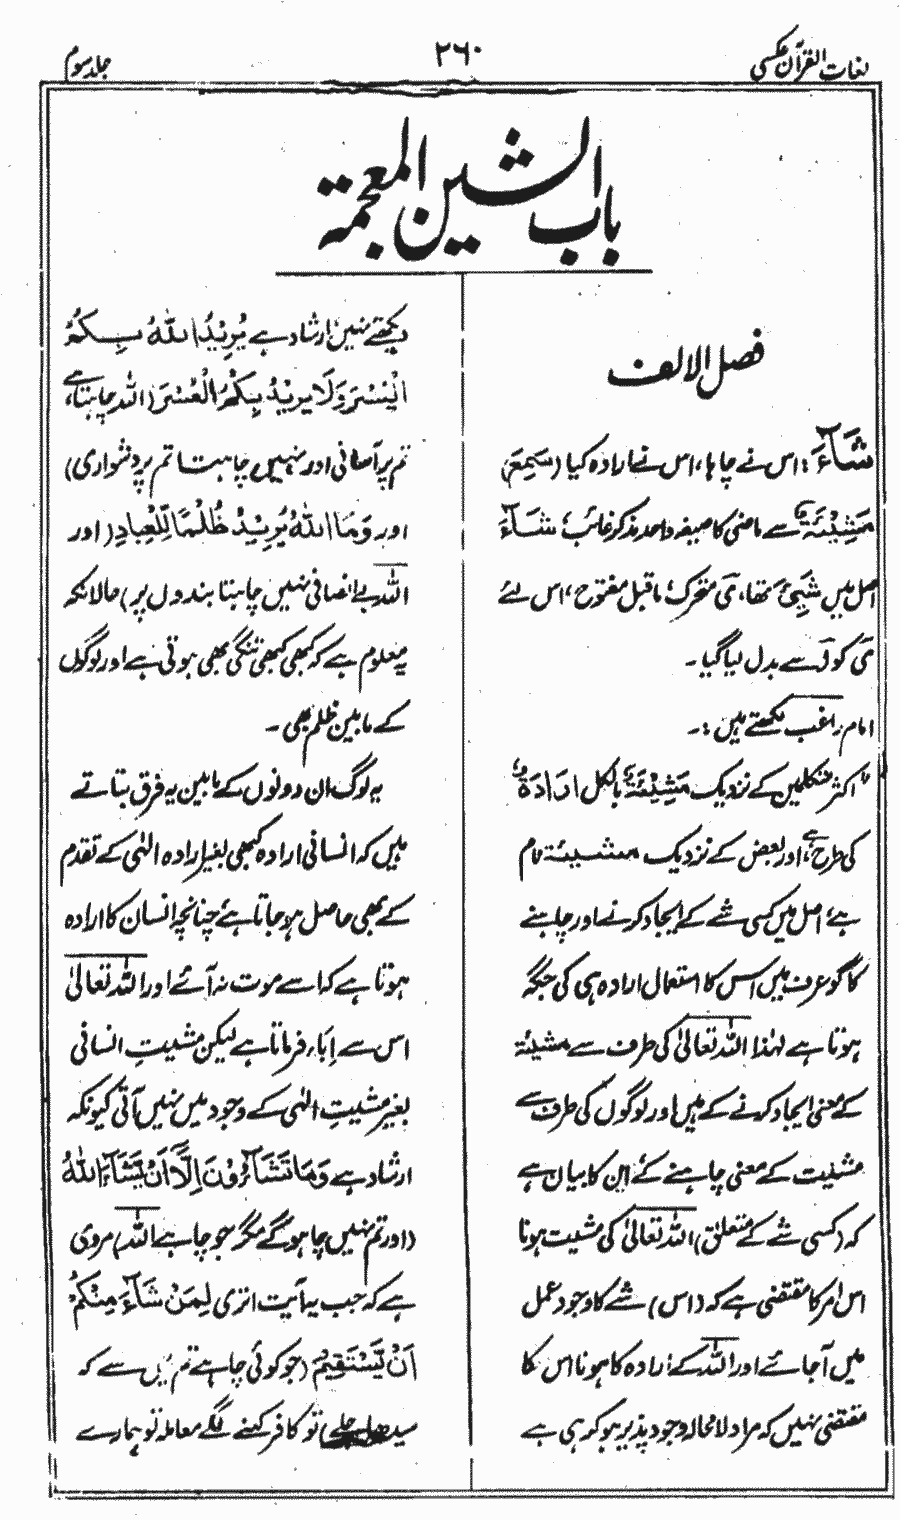 لغات القرآن عکسی
۲۶۰
جلد سوم
باب الشین المعجمۃ
فصل الالف
شَآءَ : اس نے چاہا، اس نے ارادہ کیا (سَمِعَ)
مَشِیْئَۃٌ سے ماضی کا صیغہ واحد مذکر غائب،
شَآءَ
اصل میں شَیِئَ تھا، یَ متحرک، ماقبل مفتوح، اس لئے
یَ کو اَ سے بدل لیا گیا۔
امام راغب لکھتے ہیں :۔
"اکثر متکلمین کے نزدیک مَشِیْئَۃٌ بالکل اِرَادَۃٌ
کی طرح ہے، اور بعض کے نزدیک مشیئۃ نام
ہے، اصل میں کسی شے کے ایجاد کرنے اور چاہنے
کا گو عرف میں اس کا استعمال ارادہ ہی کی جگہ
ہوتا ہے لہٰذا اللہ تعالیٰ کی طرف سے مشیئۃ
کے معنی ایجاد کرنے کے ہیں اور لوگوں کی طرف سے
مشیت کے معنی چاہنے کے، ابن کا بیان ہے
کہ (کسی شے کے متعلق) اللہ تعالیٰ کی مشیت ہونا
اس امر کا مقتضی ہے کہ (اس) شے کا وجود عمل
میں آجائے اور اللہ کے ارادہ کا ہونا اس کا
مقتضی نہیں کہ مراد لامحالہ وجود پذیر ہو کر ہی ہے
دیکھتے نہیں ارشاد ہے یُرِیْدُ اللّٰہُ بِکُمُ
الْیُسْرَ وَلَا یُرِیْدُ بِکُمُ الْعُسْرَ (اللہ چاہتا ہے،
تم پر آسانی اور نہیں چاہتا تم پر دشواری)
اور وَمَا اللّٰہُ یُرِیْدُ ظُلْمًا لِّلْعِبَادِ (اور
اللہ بے انصافی نہیں چاہتا بندوں پر) حالانکہ
یہ معلوم ہے کہ کبھی کبھی تنگی بھی ہوتی ہے اور لوگوں
کے مابین ظلم بھی ۔
یہ لوگ ان دونوں کے مابین یہ فرق بتاتے
ہیں کہ انسانی ارادہ کبھی بغیر ارادہ الٰہی کے تقدم
کے بھی حاصل ہو جاتا ہے، چنانچہ انسان کا ارادہ
ہوتا ہے کہ اسے موت نہ آئے اور اللہ تعالیٰ
اس سے اِبَاء فرماتا ہے لیکن مشیتِ انسانی
بغیر مشیتِ الٰہی کے وجود میں نہیں آتی کیونکہ
ارشاد ہے وَمَا تَشَآءُوْنَ اِلَّآ اَنْ یَّشَآءَ اللّٰہُ
(اور تم نہیں چاہو گے مگر جو چاہے اللہ) مروی
ہے کہ جب یہ آیت اتری لِمَنْ شَآءَ مِنْکُمْ
اَنْ یَّسْتَقِیْمَ (جو کوئی چاہے تم میں سے کہ
سیدھا چلے) تو کافر کہنے لگے معاملہ تو ہمارے